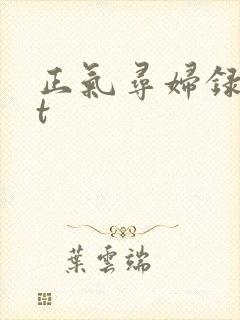 正氣尋婦録
t
葉雲端